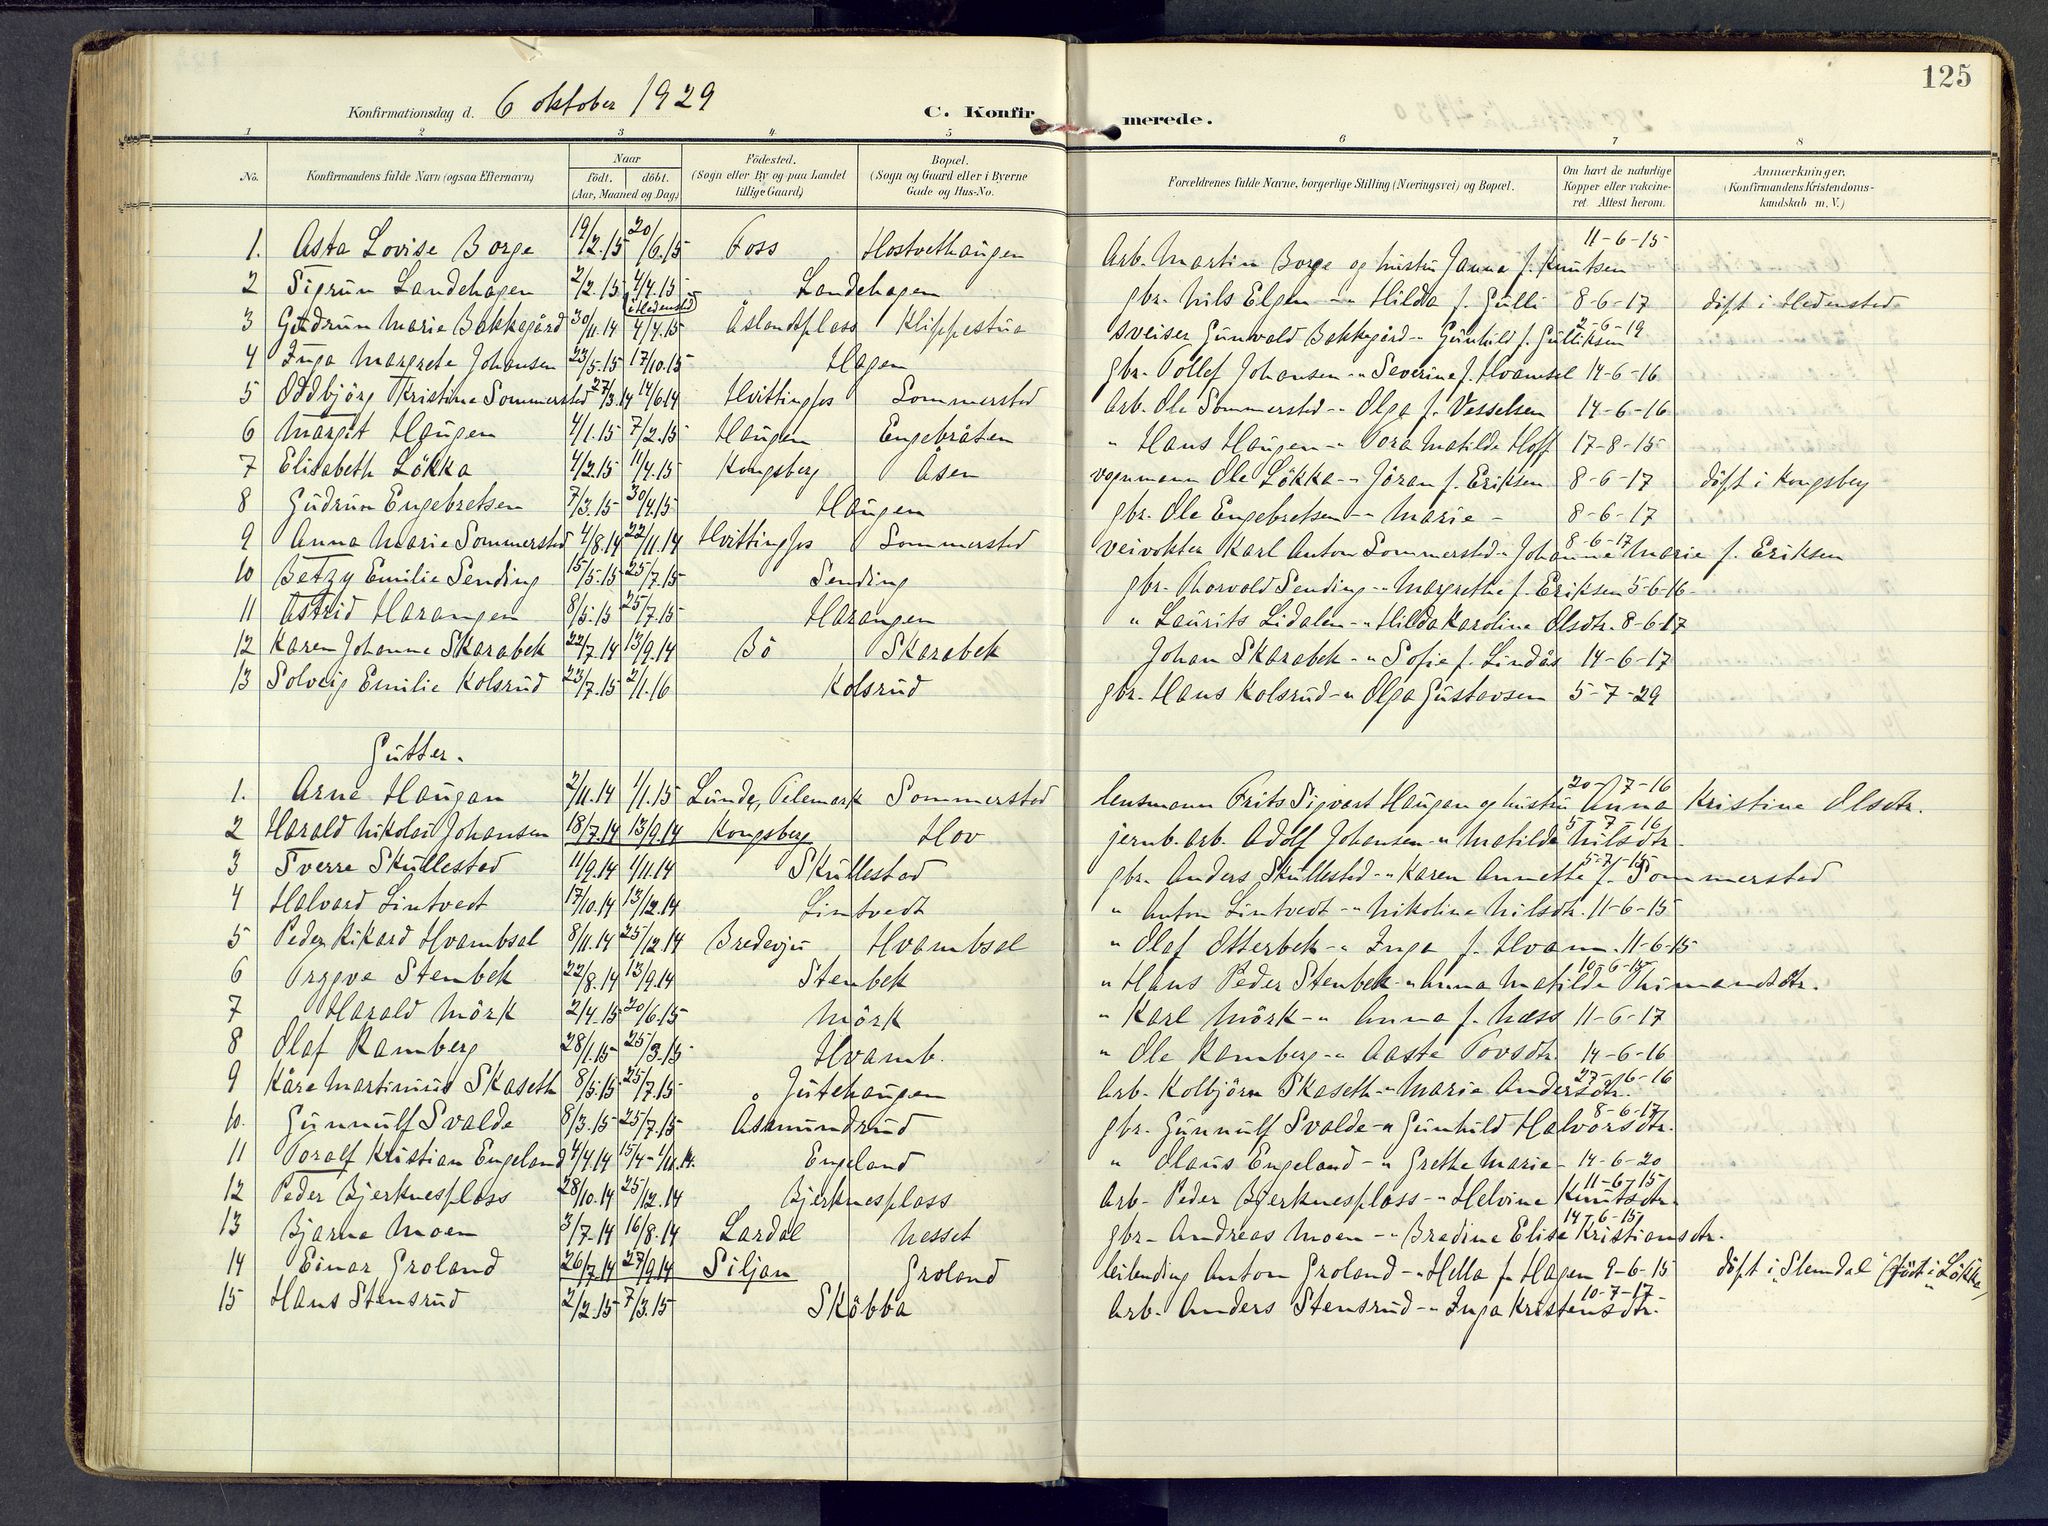 125
Konfirmationsdag d. 6 oktober 1929 C. Konfirmerede.
1 2 3 4 5 6 7 8
No. Konfirmandens fulde Navn (ogsaa Efternavn) Naar födt. döbt. (Aar, Maaned og Dag) Födested. (Sogn eller By og paa Landet tillige Gaard) Bopæl. (Sogn og Gaard eller i Byerne Gade og Hus-No. Forældrenes fulde Navne, borgerlige Stilling (Næringsvei) og Bopæl. Om havt de naturlige Kopper eller vakcineret. Attest herom. Anmærkninger. (Konfirmandens Kristendomskundskab m. V.)
1. Asta Lovise Borge 19/2.15 20/6.15 Foss Hostvethaugen Arb. Martin Borge og hustru Janna f. Knutsen 11-6-15
2 Sigrun Landehagen 2/2.15 4/4.15 i Hedensted Landehagen gbr. Nils Elgen -"- Hilda f. Gulli 8-6-17 döpt i Hedensted
3 Gudrun Marie Bakkegård 30/11.14 4/4.15 Åslandsplass Klippestua sveiser Gunvald Bakkegård -"- Gunhild f. Gulliksen 2-6-19
4 Inga Margrete Johansen 23/5.15 17/10.15 Hagen gbr. Tollef Johansen -"- Severine f. Hvamsel 14-6-16
5 Oddbjörg Kristine Sommersted 27/3.14 14/6.14 Hvittingfos Sommersted Arb. Ole Sommersted -"- Olga f. Vesselsen 14-6-16
6 Margit Haugen 4/1.15 7/2.15 Haugen Engebråten " Hans Haugen -"- Tora Matilde Hoff 17-8-15
7 Elisabeth Lökka 4/2.15 11/4.15 Kongsberg Åsen vognmann Ole Lökka -"- Jöran f. Eriksen 8-6-17 döpt i Kongsberg
8 Gudrun Engebretsen 7/3.15 30/4.15 Haugen gbr. Ole Engebretsen -"- Marie - 8-6-17
9 Anna Marie Sommersted 4/8.14 22/11.14 Hvittingfos Sommersted veivokter Karl Anton Sommersted -"- Johanne Marie f. Eriksen 8-6-17
10 Betzy Emilie Sending 15/5.15 25/7.15 Sending gbr. Thorvald Sending -"- Margrethe f. Eriksen 5-6-16
11 Astrid Harangen 8/5.15 25/7.15 Harangen " Laurits Lidalen -"- Hilda Karoline Olsdtr. 8-6-17
12 Karen Johanne Skarabek 22/7.14 13/9.14 Bö Skarabek Johan Skarabek -"- Sofie f. Lindås 14-6-17
13 Solveig Emilie Kolsrud 23/7.15 2/1.16 Kolsrud gbr. Hans Kolsrud -"- Olga Gustavsen 5-7-29
Gutter.
1. Arne Haugan 2/11.14 1/1.15 Lunde, Telemark Sommersted lensmann Frits Sigvart Haugan og hustru Anna Kristine Olsdtr. 20-7-16
2 Harald Nikolai Johansen 18/7.14 13/9.14 Kongsberg Hov jernb. arb. Adolf Johansen -"- Matilde Nilsdtr. 5-7-16
3 Sverre Skullestad 11/9.14 1/11.14 Skullestad gbr. Anders Skullestad -"- Karen Annette f. Sommersted 5-7-15
4 Halvard Lintvedt 17/10.14 13/12.14 Lintvedt " Anton Lintvedt -"- Nikoline Nilsdtr. 11-6-15
5 Peder Rikard Hvambsal 8/11.14 25/12.14 Bredevju Hvambsal " Olaf Otterbek -"- Inga f. Hvam. 11-6-15
6 Trygve Stenbek 22/8.14 13/9.14 Stenbek " Hans Peder Stenbek -"- Anna Matilde Thimandsdtr. 10-6-15
7 Harald Mörk 2/4.15 20/6.15 Mörk " Karl Mörk -"- Anna f. Næss 11-6-17
8 Olaf Ramberg 28/1.15 25/3.15 Hvamb. " Ole Ramberg -"- Aaste Tovsdtr. 14-6-16
9 Kåre Martinius Skaseth 8/5.15 25/7.15 Jutehaugen Arb. Kolbjörn Skaseth -"- Marie Andersdtr. 27-6-16
10. Gunnulf Svalde 8/3.15 25/7.15 Åsmundrud gbr. Gunnulf Svalde -"- Gunhild Halvorsdtr. 8-6-17
11 Toralf Kristian Engeland 4/4.14 15/4-1/11.14. Engeland " Olaus Engeland -"- Grethe Marie - 14-6-20
12 Peder Bjerknesplass 28/10.14 25/12.14 Bjerknesplass Arb. Peder Bjerknesplass -"- Helvine Knutsdtr. 11-6-15
13 Bjarne Moen 3/7.14 16/8.14 Lardal Nesset gbr. Andreas Moen -"- Bredine Elise Kristiansdtr. 14-6-15
14 Einar Groland 26/7.14 27/9.14 Siljan Groland leilending Anton Groland -"- Hella f. Hagen 9-6-15 döpt i "Slemdal" (födt i "Lökka")
15 Hans Stensrud 2/2.15 7/3.15 Sköbba Arb. Anders Stensrud -"- Inga Kristensdtr. 10-7-17